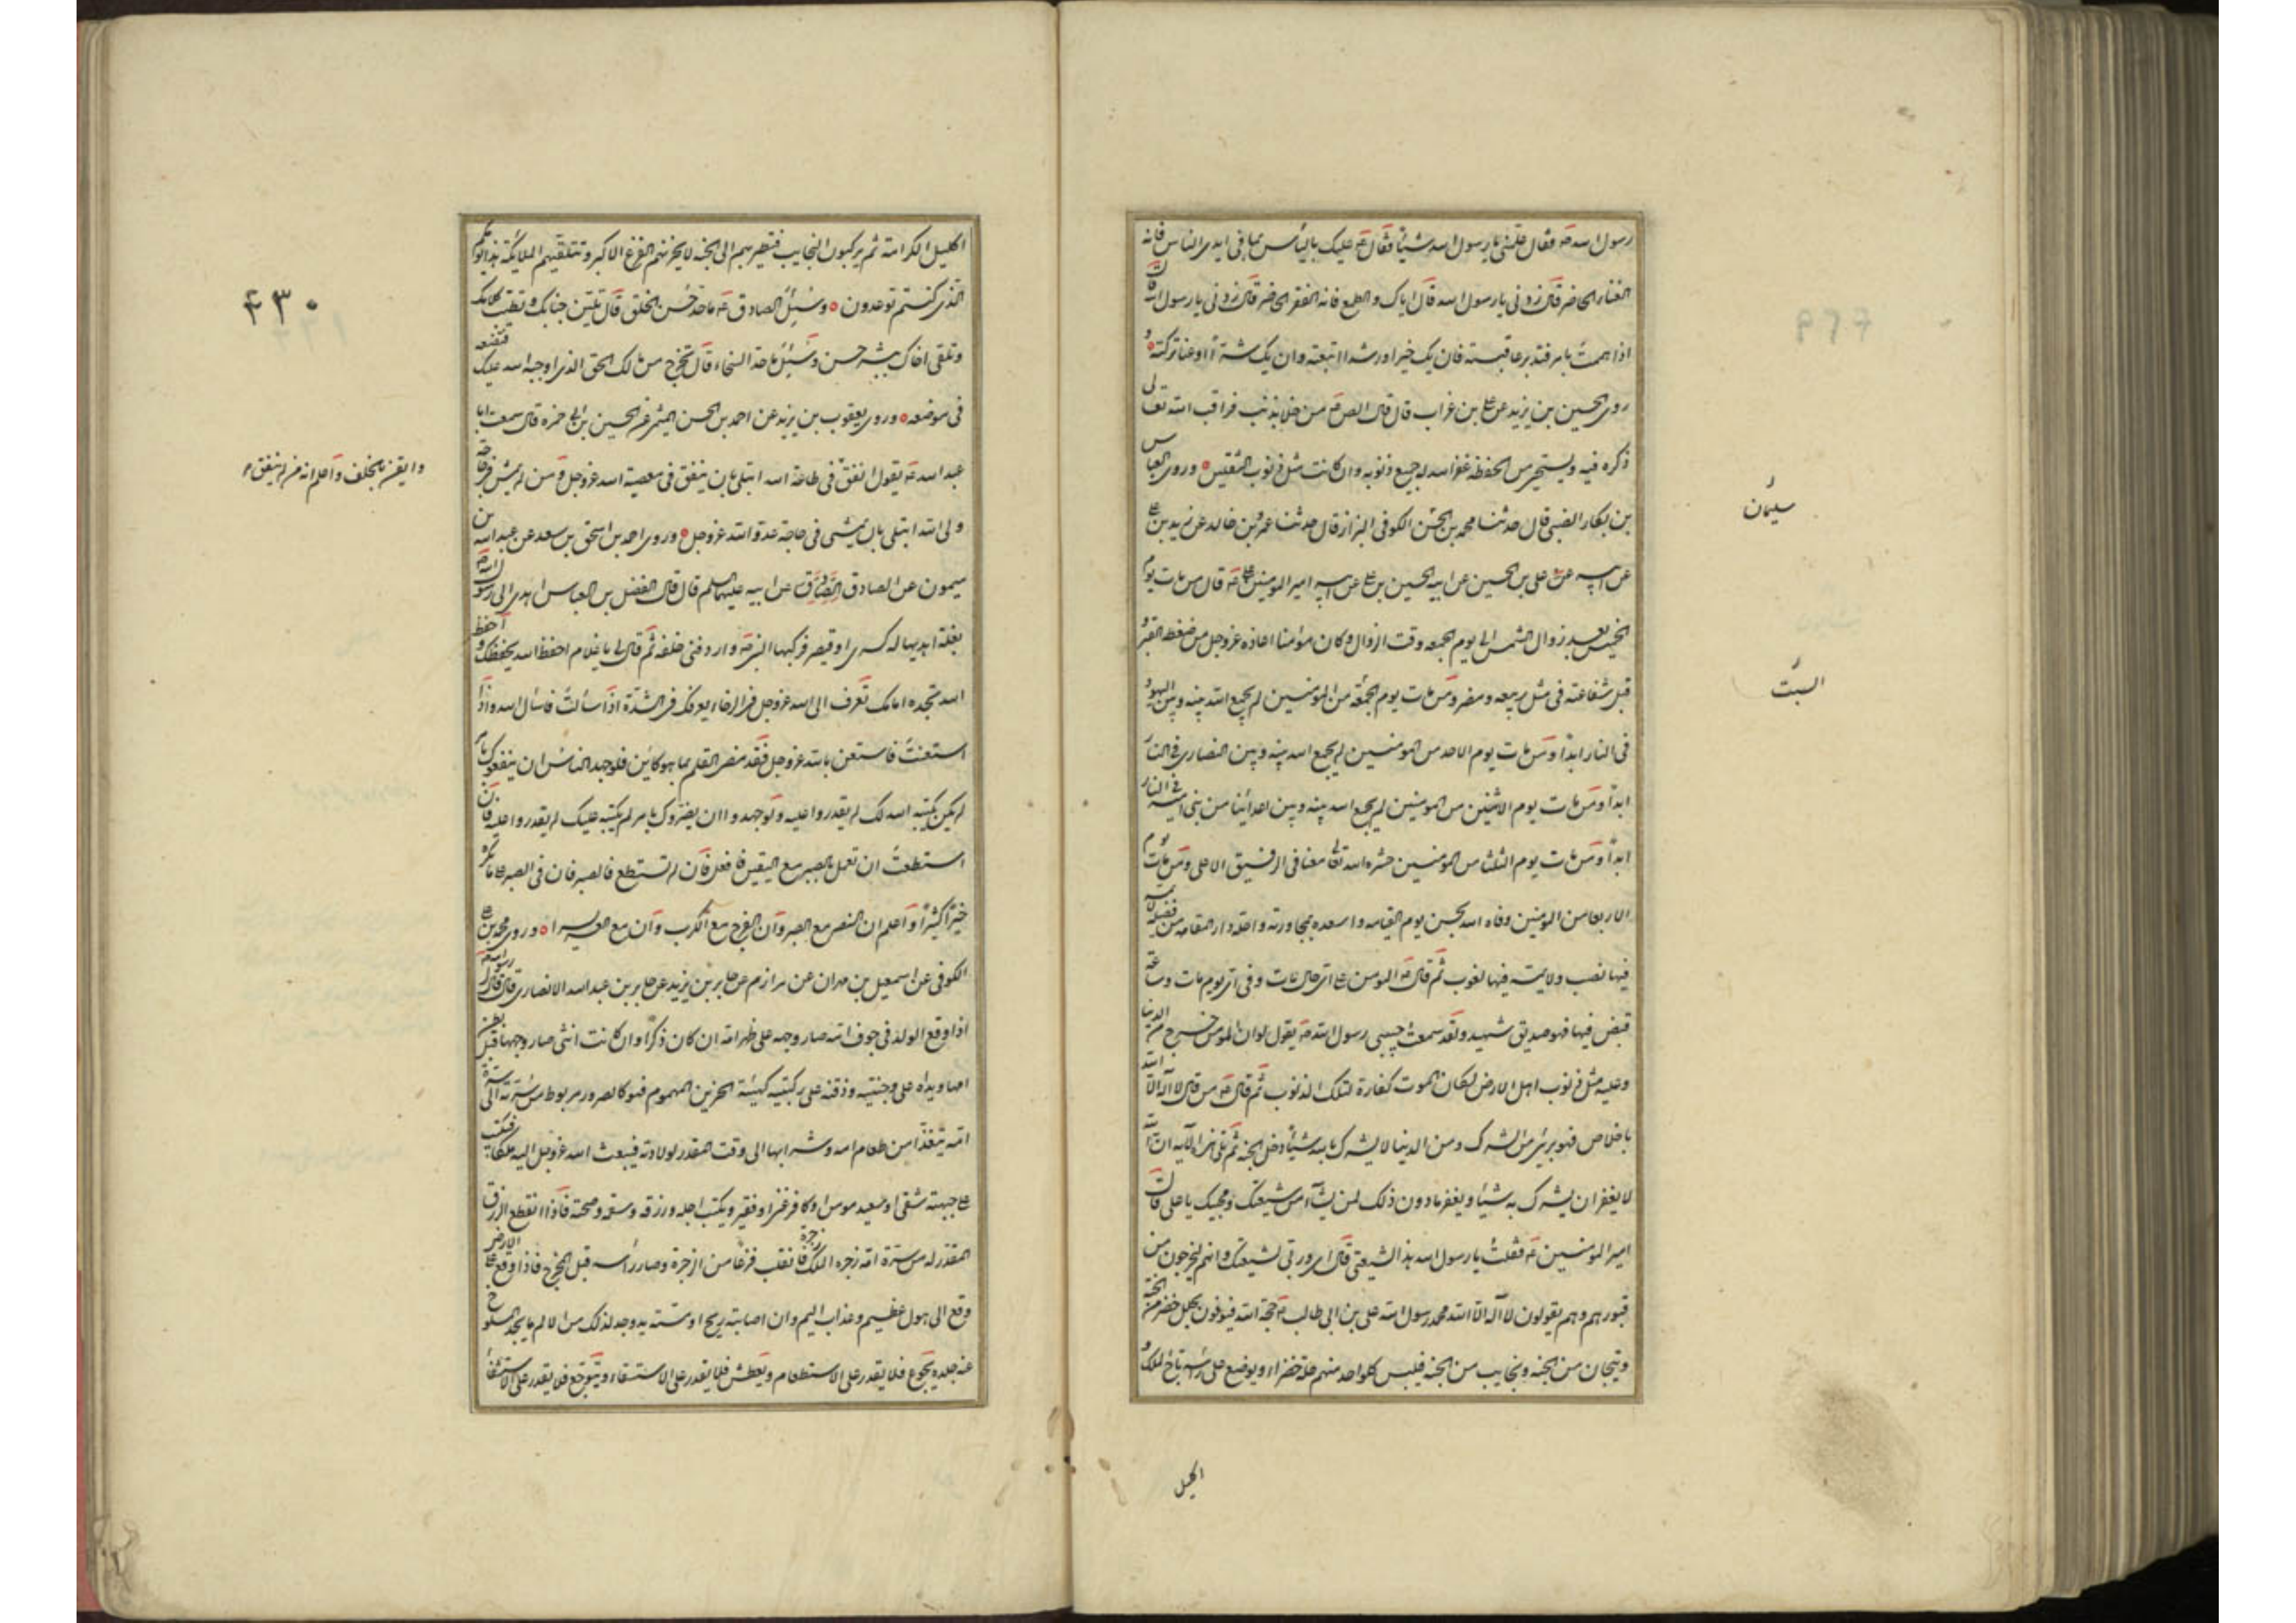 رسول الله ص فقال علمنى يا رسول الله شيئا فقال ع عليك باليأس مما فى ايدى الناس فانه
الغناء الحاضر قال زدنى يا رسول الله قال اياك و الطمع فانه الفقر الحاضر قال زدنى يا رسول الله قال
اذا هممت بامر فتدبر عاقبته فان يك خيرا او رشدا اتبعته وان يك شرا او غيا تركته و
روى الحسين بن يزيد عن على بن غراب قال قال الص ع من خلا بذنب فراقب الله تعالى
ذكره فيه و يستحيى من الحفظة غفر الله له جميع ذنوبه وان كانت مثل ذنوب الثقلين وروى العباس
بن بكار الضبى قال حدثنا محمد بن الحسن الكوفى البزاز قال حدثنا عمرو بن خالد عن زيد بن على
عن ابيه على بن الحسين عن ابيه الحسين بن على عن ابيه امير المومنين على ع قال من مات يوم
الخميس بعد زوال الشمس الى يوم الجمعه وقت الزوال وكان مؤمنا اعاذه عز وجل من ضغطة القبر و
قبل شفاعته فى مثل ربيعه و مضر و من مات يوم الجمعه من المومنين لم يجمع الله بينه و بين اليهود
فى النار ابدا و من مات يوم الاحد من المومنين لم يجمع الله بينه و بين النصارى فى النار
ابدا و من مات يوم الاثنين من المومنين لم يجمع الله بينه و بين اعدائنا من بنى اميه فى النار
ابدا و من مات يوم الثلثا من المومنين حشره الله تعا معنا فى الرفيق الاعلى و من مات يوم
الاربعا من المومنين وقاه الله نحس يوم القيامه و اسعده بمجاورته و احله دار المقامه من فضله لا يمسه
فيها نصب ولا يمسه فيها لغوب ثم قال ع المومن على اى حال مات و فى اى يوم مات و ساعة
قبض فيها فهو صديق شهيد و لقد سمعت حبيبى رسول الله ص يقول لو ان المومن خرج من الدنيا
و عليه مثل ذنوب اهل الارض لكان الموت كفارة لتلك الذنوب ثم قال ع من قال لا اله الا الله
باخلاص فهو برىء من الشرك و من الدنيا لا يشرك بالله شيئا دخل الجنه ثم تلى هذه الآيه ان الله
لا يغفر ان يشرك به شيئا و يغفر ما دون ذلك لمن يشآء من شيعتك و محبيك يا على قال
امير المومنين ع فقلت يا رسول الله هذا لشيعتى قال اى و ربى لشيعتك و انهم ليخرجون من
قبورهم و هم يقولون لا اله الا الله محمد رسول الله على بن ابى طالب ع حجة الله فيوتون بحلل خضر من الجنة
و تيجان من الجنه و نجايب من الجنه فيلبس كلواحد منهم حلة خضراء و يوضع على راسه تاج الملك و
سليمان
السبت
اكليل
اكليل الكرامة ثم يركبون النجايب فتطير بهم الى الجنه لا يحزنهم الفزع الاكبر و تتلقيهم الملائكة هذا يومكم
الذى كنتم توعدون و سئل الصادق ع ما حد حسن الخلق قال تلين جنابك و تطيب كلامك
و تلقى اخاك ببشر حسن و سئل ما حد السخاء قال تخرج من مالك الحق الذى اوجبه الله عليك فتضعه
فى موضعه و روى يعقوب بن يزيد عن احمد بن الحسن الميثمى عن الحسين بن ابى حمزه قال سمعت ابا
عبد الله ع يقول انفق فى طاعة الله ابتلى بان ينفق فى معصية الله عز وجل و من لم يمش فى حاجة
ولى الله ابتلى بان يمشى فى حاجة عدو الله عز وجل و روى احمد بن اسحق بن سعد عن عبد الله بن
ميمون عن الصادق عن ابيه عليهما السلم قال قال الفضل بن العباس اهدى الى رسول الله ص
بغلة اهديها له كسرى او قيصر فركبها النبى ص و اردفنى خلفه ثم قال لى يا غلام احفظ الله يحفظك و احفظ
الله تجده امامك تعرف الى الله عز وجل فى الرخاء يعرفك فى الشدة اذا سألت فاسأل الله و اذا
استعنت فاستعن بالله عز وجل فقد مضى القلم بما هو كائن فلو جهد الناس ان ينفعوك بامر
لم يكن يكتبه الله لك لم يقدروا عليه و لو جهدوا ان يضروك بامر لم يكتبه عليك لم يقدروا عليه فان
استطعت ان تعمل بالصبر مع اليقين فافعل فان لم تستطع فالصبر فان فى الصبر على ما تكره
خيرا كثيرا و اعلم ان النصر مع الصبر و ان الفرج مع الكرب و ان مع العسر يسرا و روى محمد بن على
الكوفى عن اسمعيل بن مهران عن مرازم عن جابر بن يزيد عن جابر بن عبد الله الانصارى قال قال رسول الله ص
اذا وقع الولد فى جوف امه صار وجهه على ظهر امه ان كان ذكرا و ان كانت انثى صار وجهها قبل بطن
امها و يداه على وجنتيه و ذقنه على ركبتيه كهيئة الحزين المهموم فهو كالمصرور مربوط من سرته الى سرة
امه يتغذا من طعام امه و شرابها الى وقت المقدر لولادته فيبعث الله عز وجل اليه ملكا فيكتب
على جبهته شقى او سعيد مومن او كافر غنى او فقير و يكتب اجله و رزقه و سقمه و صحته فاذا انقطع الرزق
المقدر له من سرة امه زجره الملك زجرة فانقلب فزعا من الزجرة و صار راسه قبل المخرج فاذا وقع على الارض
وقع الى هول عظيم و عذاب اليم و ان اصابته ريح او مشته يد وجد لذلك من الالم ما يجد المسلوخ
عنه جلده يجوع فلا يقدر على الاستطعام و يعطش فلا يقدر على الاستسقاء و يتوجع فلا يقدر على الاستغاثة
٤٣٠
و ايقن بالخلف و اعلم انه من لم ينفق